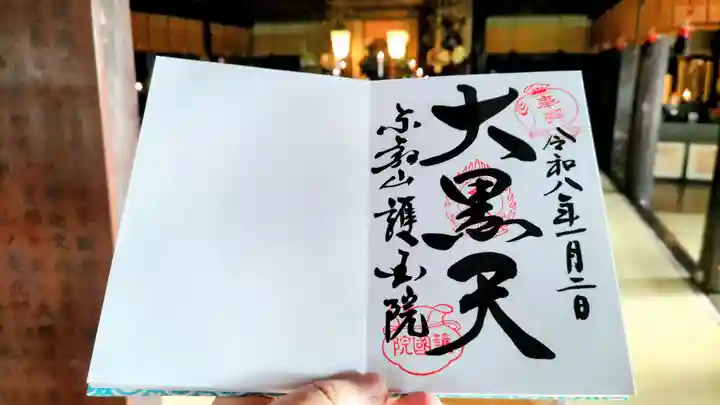 奉拝
令和八年一月二日
大黒天
東叡山 護国院
護國院